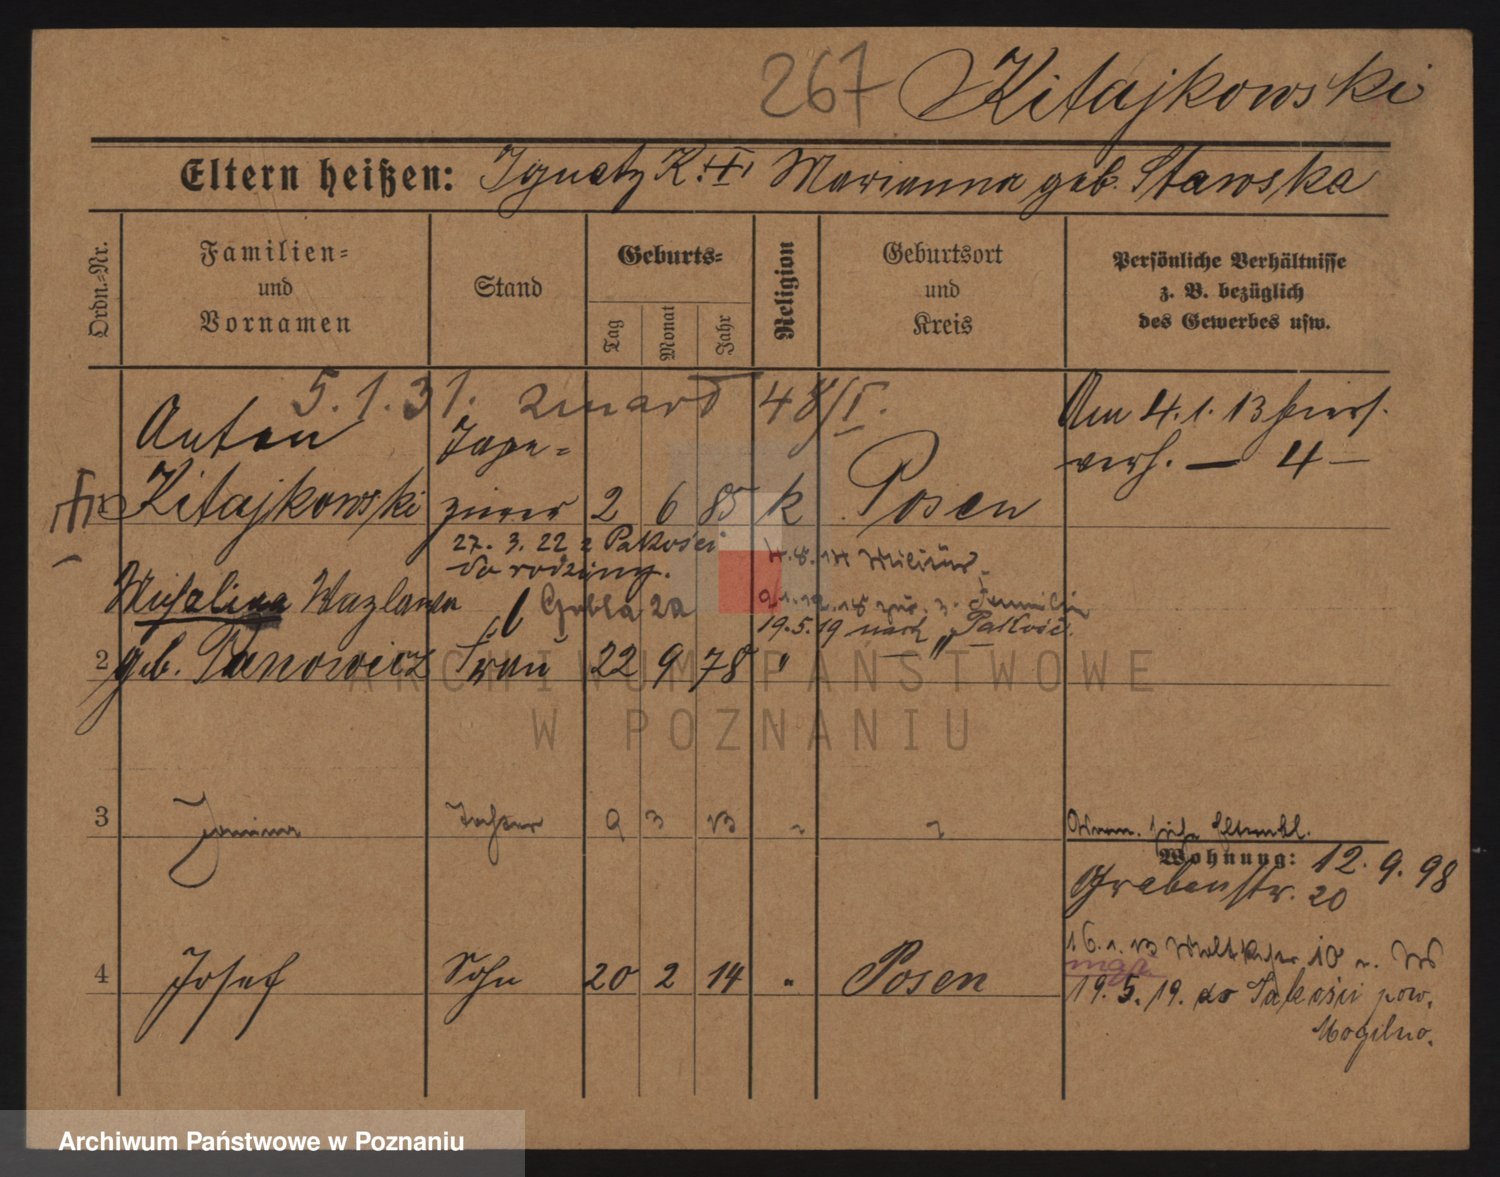 267 Kitajkowski
Eltern heißen: Ignatz K. Marianna geb. Stawska
Ordn.-Nr.
Familien-
und
Vornamen
Stand
Geburts-
Tag
Monat
Jahr
Religion
Geburtsort
und
Kreis
Persönliche Verhältnisse
z. B. bezüglich
des Gewerbes usw.
5.1.31. zmarł 48/I.
Anton Tape- Am 4.1.13
Kitajkowski zierer 2 6 85 k Posen
verh. — 4 —
27. 3. 22 z Pakości
do rodziny.
4.8.14 Militär.
Grobla 2a
Wazlawa
19.5.19 nach Pakość.
2 geb. Panowicz Frau 22 9 78 "
3 Janina Tochter 9 3 13 "
Wohnung: 12.9.98
Grabenstr. 20
4 Josef Sohn 20 2 14 " Posen
16.1.13
19.5.19. do Pakości pow.
Mogilno.
ARCHIWUM PAŃSTWOWE
W POZNANIU
Archiwum Państwowe w Poznaniu